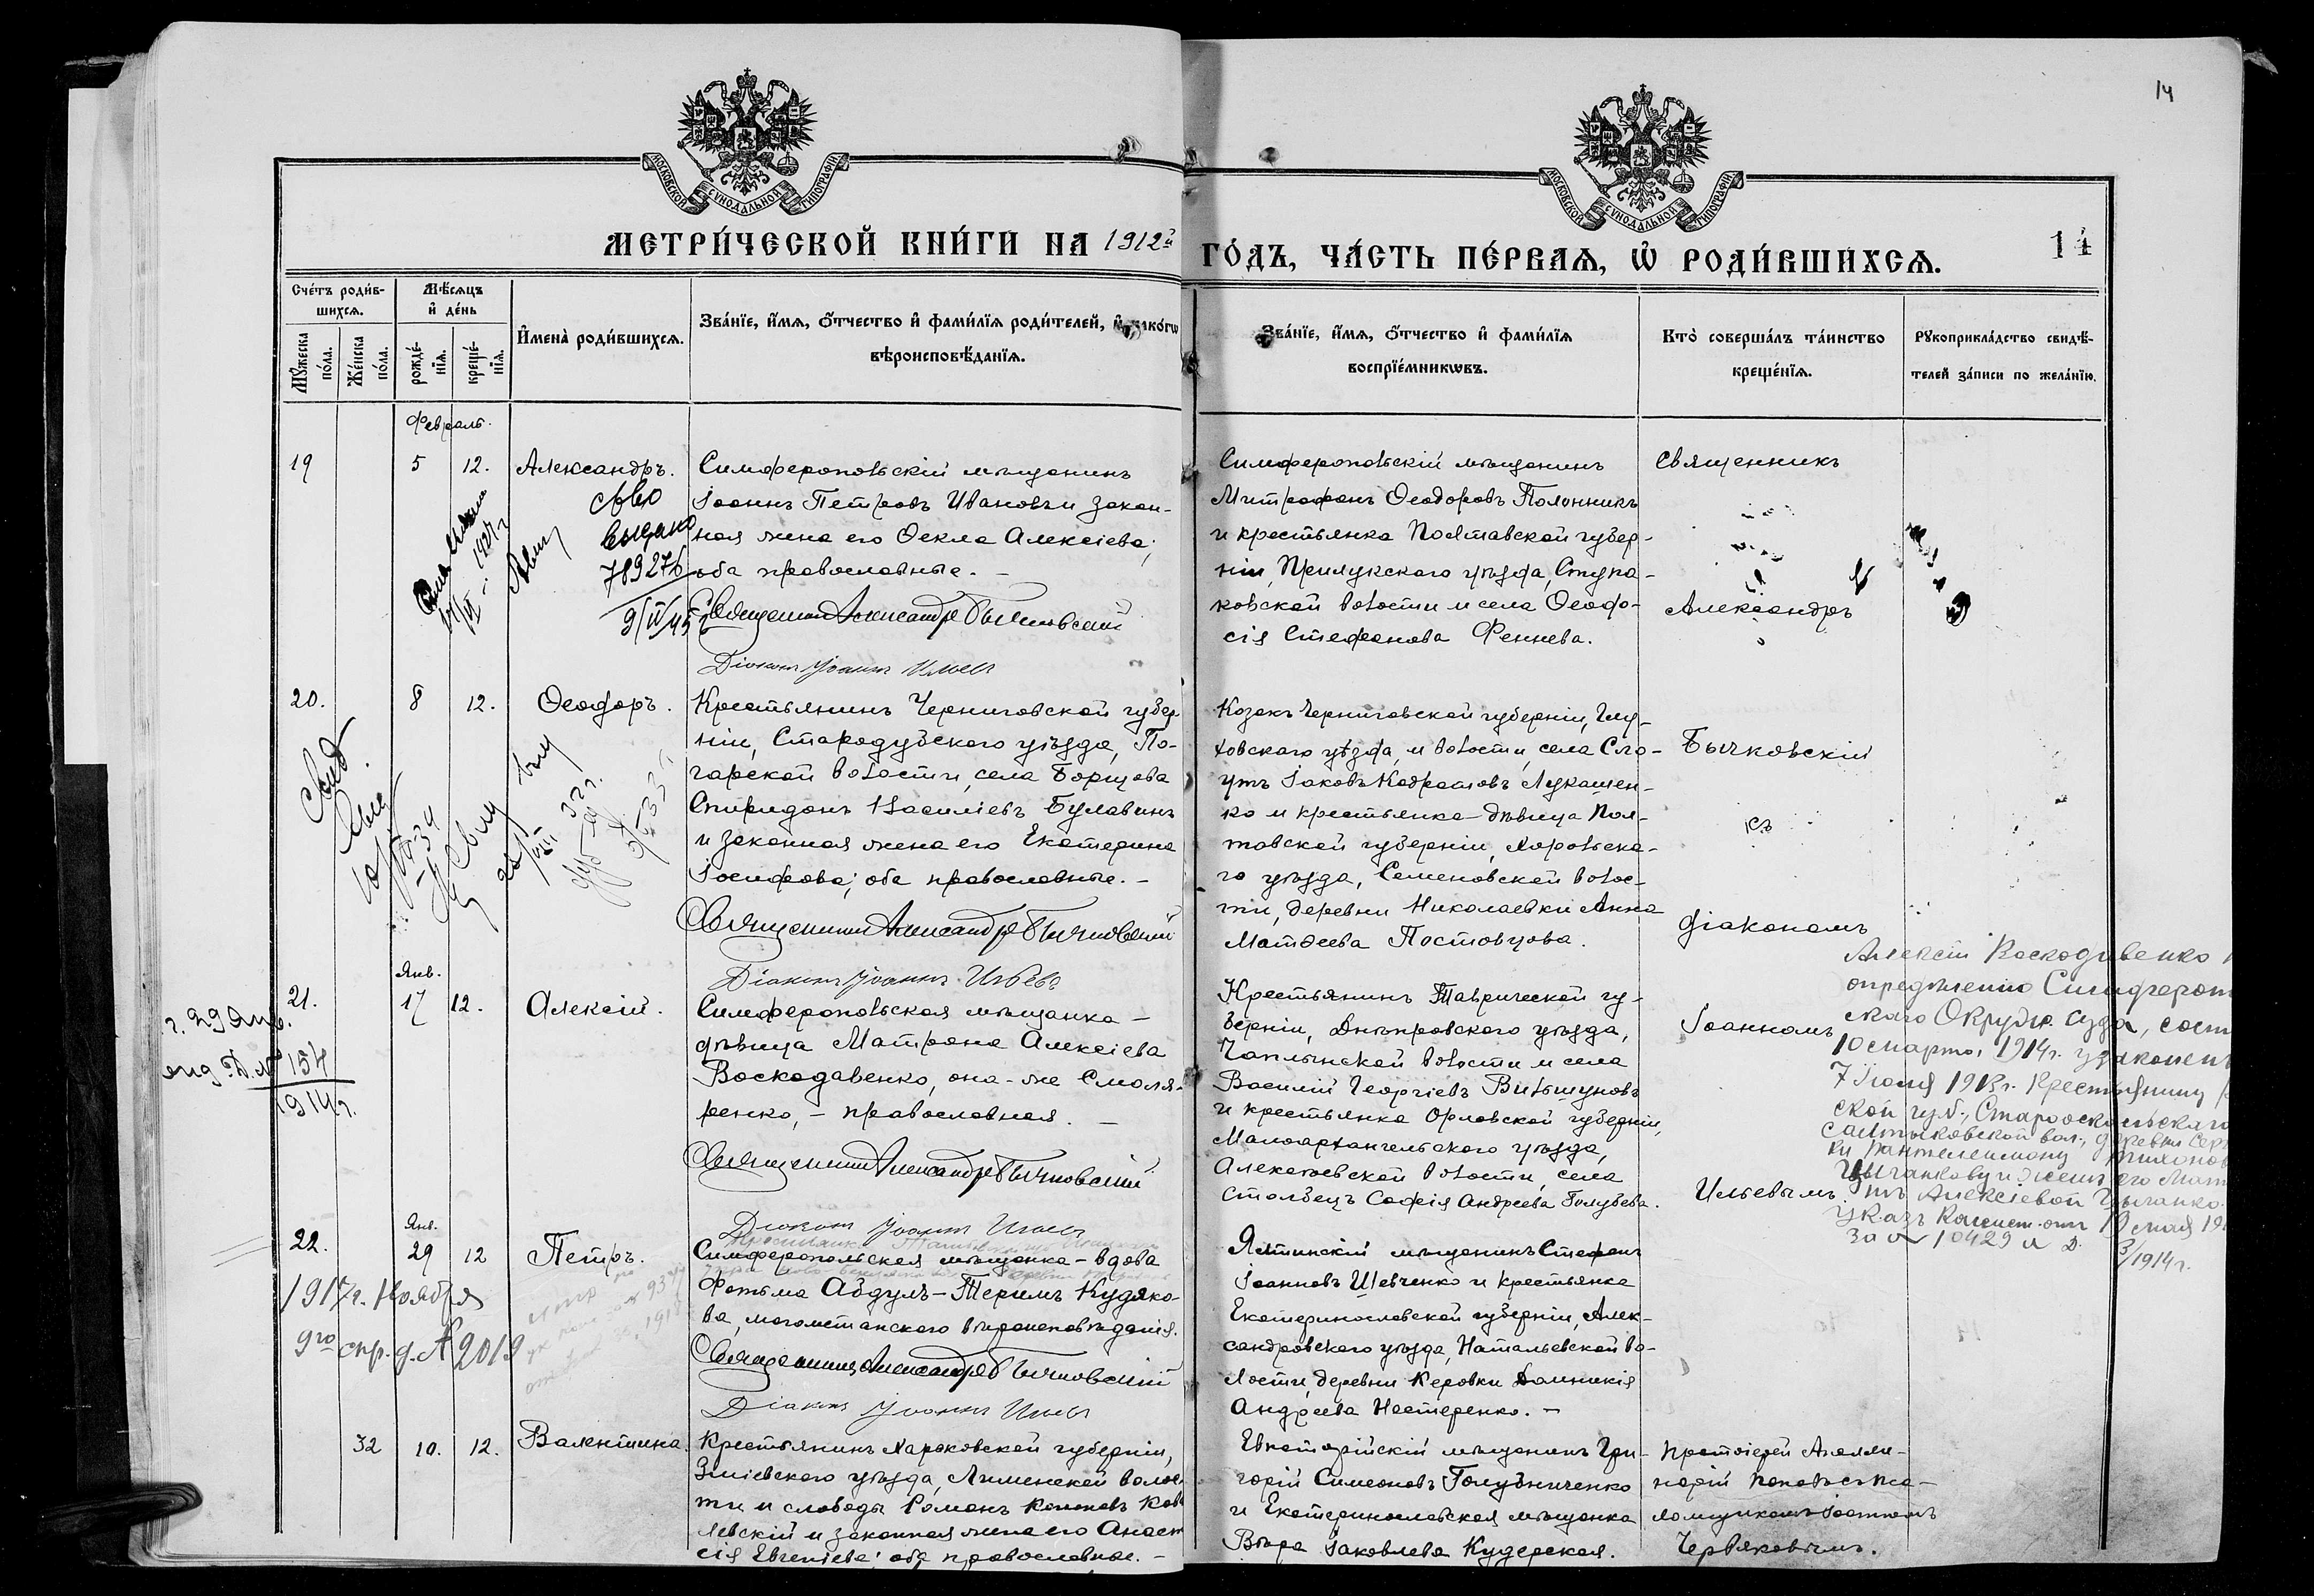 14
МОСКОВСКОЙ СѴНОДАЛЬНОЙ ТИПОГРАФІИ
МОСКОВСКОЙ СѴНОДАЛЬНОЙ ТИПОГРАФІИ
МЕТРИ́ЧЕСКОЙ КНИ́ГИ НА 1912й
ГО́ДЪ, ЧА́СТЬ ПЕ́РВАѦ, Ѡ҆ РОДИ́ВШИХСѦ.
14
Сче́тъ роди́в-
шихсѧ.
Мѣ́сѧцъ
и҆ де́нь
Мꙋ́жеска
по́ла.
Же́нска
по́ла.
рожде́-
нїѧ.
креще́-
нїѧ.
И҆мена̀ роди́вшихсѧ.
Зва́нїе, и҆́мѧ, ѻ҆́тчество и҆ фами́лїѧ роди́телей,
вѣроисповѣ́данїѧ.
Зва́нїе, и҆́мѧ, ѻ҆́тчество и҆ фами́лїѧ
воспрїе́мникѡвъ.
Кто̀ соверша́лъ та́инство
креще́нїѧ.
Рꙋкоприкла́дство свидѣ́-
телей за́писи по жела́нїю.
Февраль.
19 5 12. Александръ.
Симферопольскій мѣщанинъ
Іоаннъ Петровъ Ивановъ и закон-
ная жена его Ѳекла Алексіева;
оба православные. –
Священникъ Александръ Бычковскій
Діаконъ Іоаннъ Ильевъ
выдано
789276
9/IV/45
Симферопольскій мѣщанинъ
Митрофанъ Ѳеодоровъ Полонникъ
и крестьянка Полтавской губер-
ніи, Прилукскаго уѣзда, Ступа-
ковской волости и села Ѳеодо-
сія Стефанова Феннева.
Священникъ
Александръ
20. 8 12. Ѳеодоръ.
Крестьянинъ Черниговской губер-
ніи, Стародубскаго уѣзда, По-
гарской волости, села Борщова
Спиридонъ Василіевъ Булавинъ
и законная жена его Екатерина
Іосифова; оба православные. –
Священникъ Александръ Бычковскій
Діаконъ Іоаннъ Ильевъ
Козакъ Черниговской губерніи, Глу-
ховскаго уѣзда, и волости, села Сло-
утъ Іаковъ Кодратовъ Лукашен-
ко и крестьянка-дѣвица Пол-
тавской губерніи, Хорольска-
го уѣзда, Семеновской волос-
ти, деревни Николаевки Анна
Матѳеева Постовцова.
Бычковскій
съ
діакономъ
Янв.
21. 17 12. Алексій.
Симферопольская мѣщанка –
дѣвица Матрона Алексіева
Воскодавенко, она-же Смоля-
ренко, – православная. –
Священникъ Александръ Бычковскій
Діаконъ Іоаннъ Ильевъ
г. 29 Янв.
154
1914 г.
Крестьянинъ Таврической гу-
берніи, Днѣпровскаго уѣзда,
Чаплынской волости и села
Василій Георгіевъ Вильшуновъ
и крестьянка Орловской губерніи,
Малоархангельскаго уѣзда,
Алексеевской волости, села
Столбецъ Софія Андреева Голубева.
Іоанномъ
Ильевымъ.
Алексѣй Воскодавенко
опредѣленію Симфероп
скаго Окружн. Суда, сост
10 марта 1914 г. узаконенъ
7 Іюля 1913 г. Крестьянину
ской губ., Старооскольскаго
Салтыковской вол., деревни Сер
ки Пантелеимону Тихонов
Цыганкову и женѣ его Мат
нѣ Алексіевой Цыганко.
Указъ Консист. отъ 19 мая 191
за № 10429
1914 г.
Янв.
22. 29 12 Петръ.
Симферопольская мѣщанка – вдова
Фатьма Абдулъ-Теримъ Кудяко-
ва, магометанскаго вѣроисповѣданія.
Священникъ Александръ Бычковскій
Діаконъ Іоаннъ Ильевъ
1917 г. Ноября
9го спр. д. № 2019
Ялтинскій мѣщанинъ Стефанъ
Іоанновъ Шевченко и крестьянка
Екатеринославской губерніи, Алек-
сандровскаго уѣзда, Натальевской во-
лости, деревни Керовки Домникія
Андреева Нестеренко. –
32 10. 12. Валентина.
Крестьянинъ Харьковской губерніи,
Зміевскаго уѣзда, Лиманской волос
ти и слободы Романъ Кононовъ Ков
левскій и законная жена его Анаст
сія Евгеніева; оба православные. –
Евпаторійскій мѣщанинъ Гри-
горій Симеоновъ Голубниченко
и Екатеринославская мѣщанка
Вѣра Іаковлева Кудерская.
Протоіерей Аполли-
нарій Поповъ съ пса-
ломщикомъ Іоанномъ
Червяковымъ.